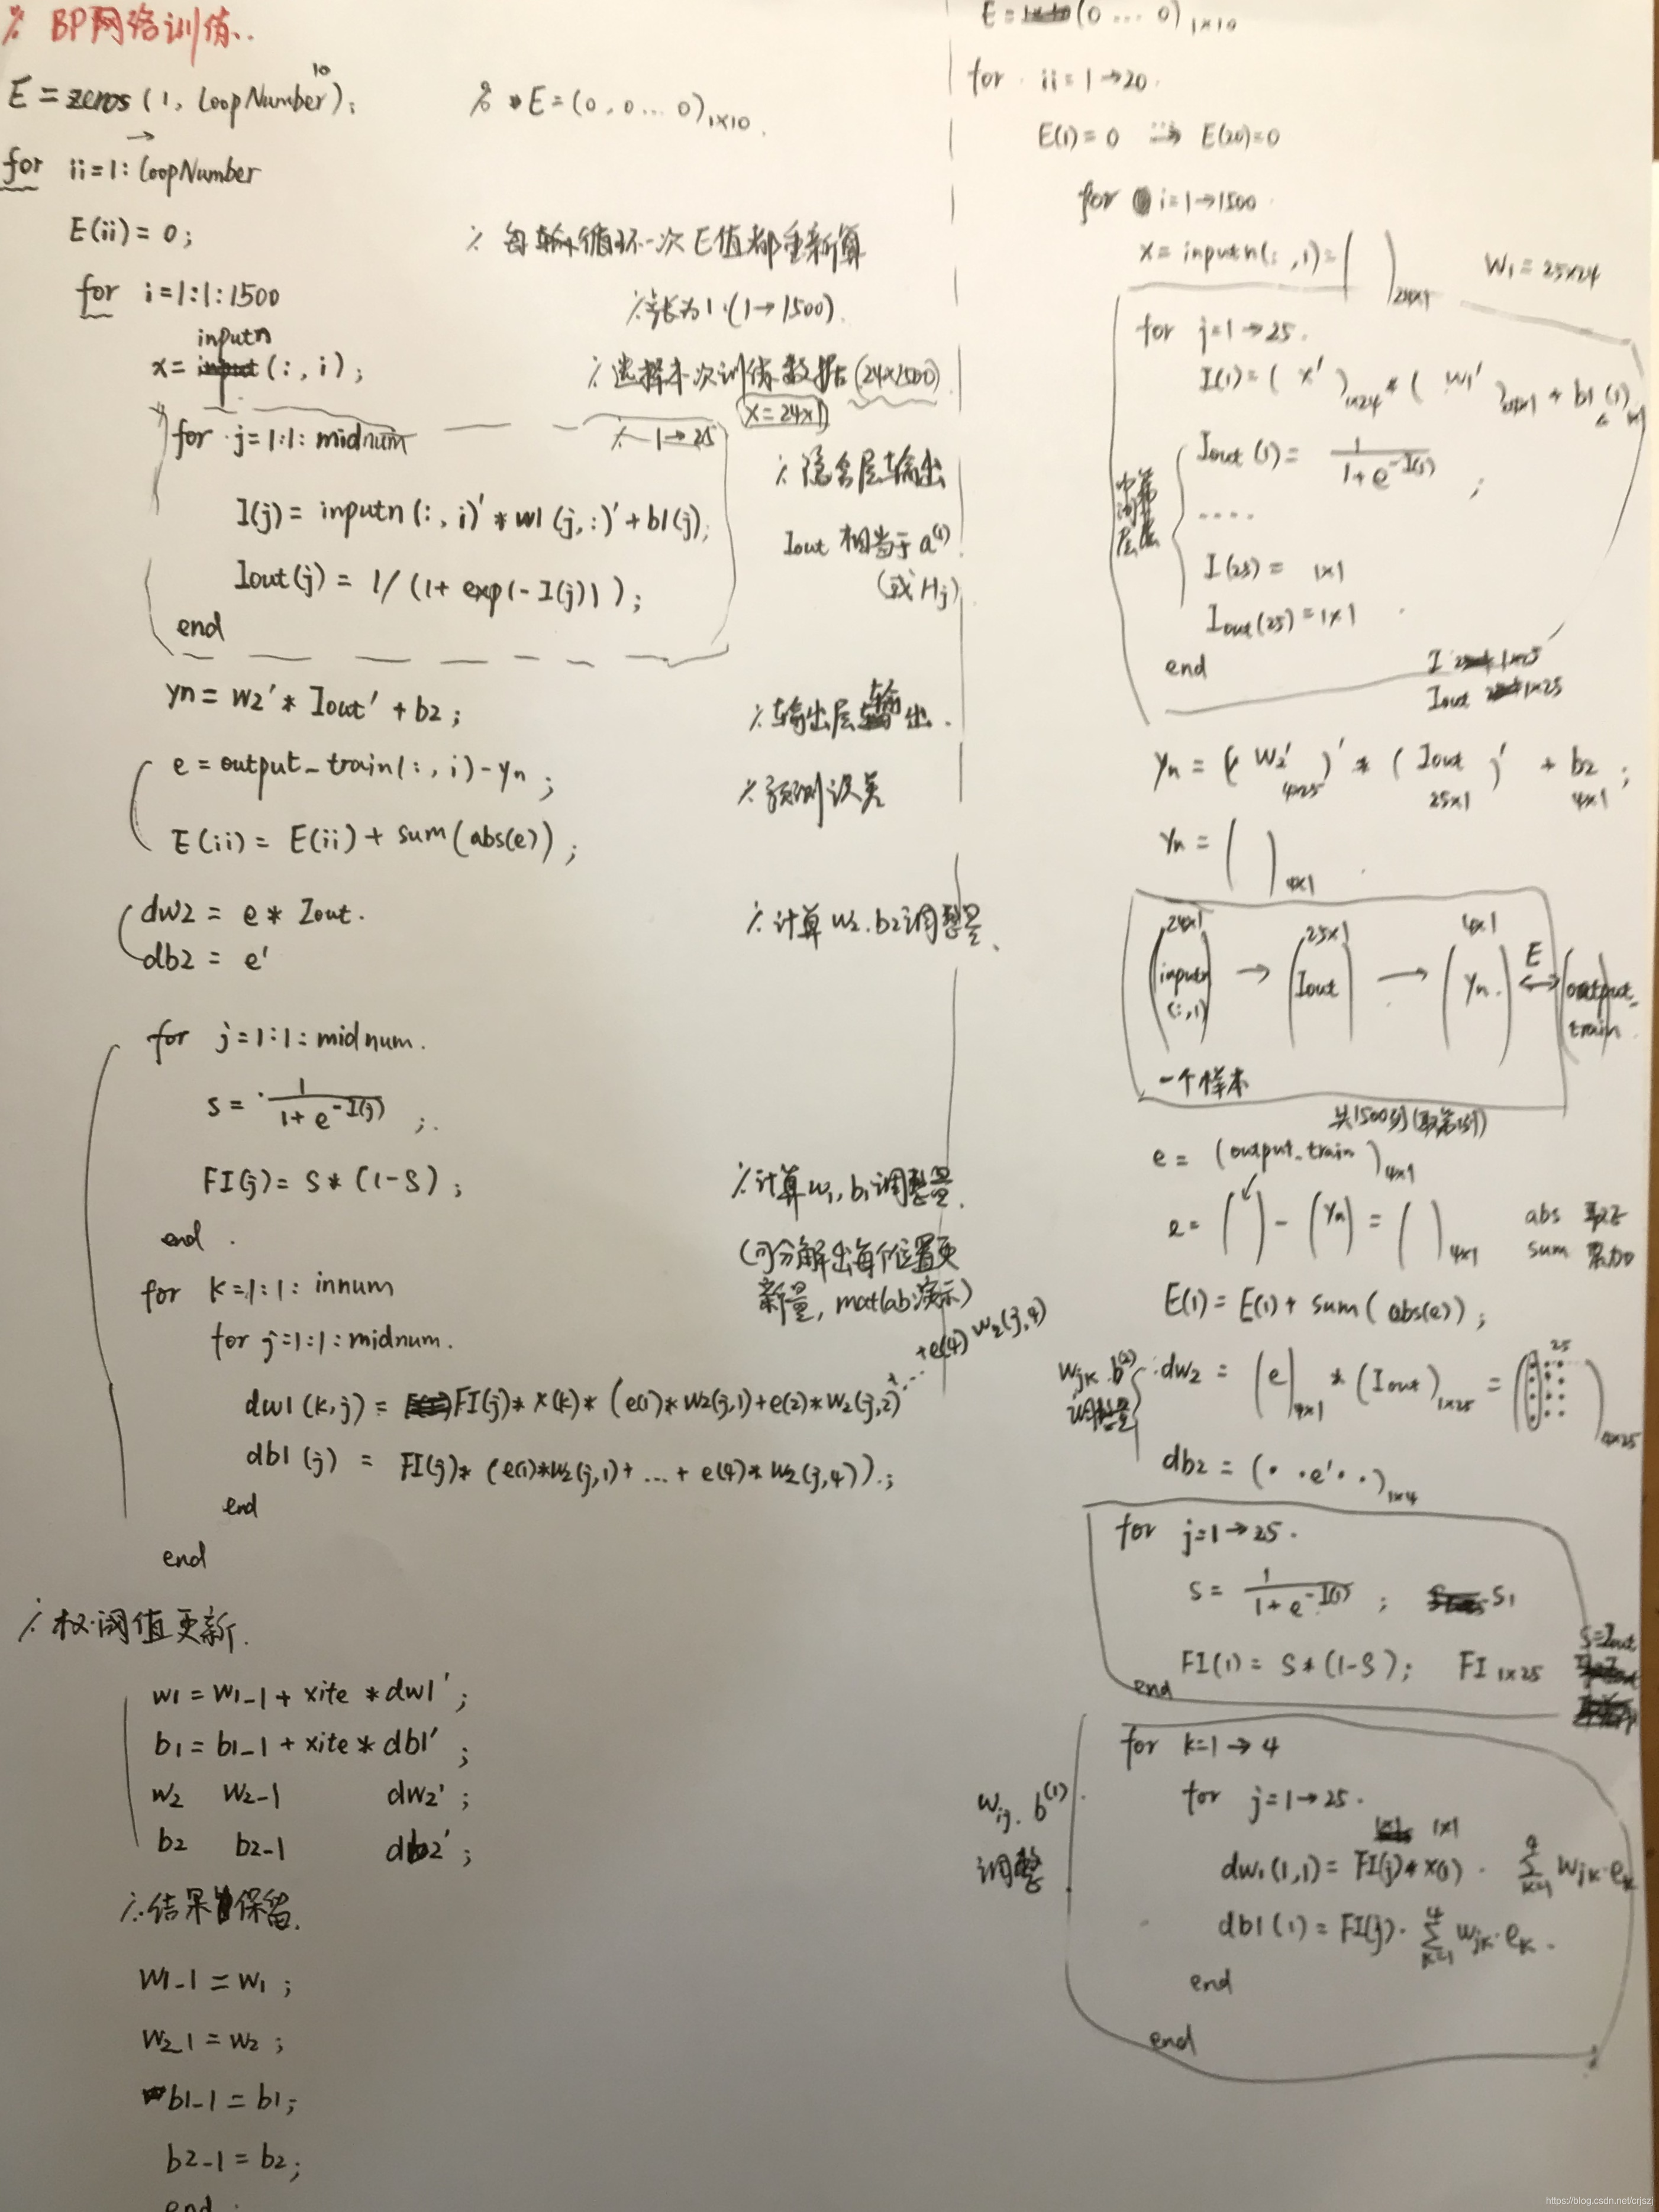 % BP网络训练..
10
E = zeros(1, loopNumber);
% E = (0, 0 … 0)1×10.
for ii=1: loopNumber
E(ii) = 0;
% 每轮循环一次E值都重新算
for i=1:1:1500
% 步长为1.(1→1500).
inputn
x = input(:, i);
% 选择本次训练数据(24×1500)
x=24×1
for j=1:1: midnum
% 1→25
% 隐含层输出
I(j) = inputn(:, i)' * w1(j,:)' + b1(j);
Iout 相当于 a(1)
(或 Hj)
Iout(j) = 1/(1+ exp(-I(j)));
end
yn = w2' * Iout' + b2;
% 输出层输出.
e = output_train(:, i) - yn;
% 预测误差
E(ii) = E(ii) + sum(abs(e));
dw2 = e * Iout.
% 计算w2.b2调整量.
db2 = e'
for j=1:1:midnum.
s = 1/(1+e^-I(j));
FI(j) = S * (1-S);
% 计算w1,b1调整量.
end.
(可分解出每个位置更
新量, matlab演示)
for k=1:1: innum
for j=1:1:midnum.
dw1(k,j) = FI(j)* x(k)* (e(1)*w2(j,1)+e(2)*w2(j,2)+…+e(4)w2(j,4)
db1(j) = FI(j)* (e(1)*w2(j,1)+ … + e(4)* w2(j,4)).;
end
end
% 权.阈值更新.
w1 = w1-1 + xite * dw1';
b1 = b1-1 + xite * db1';
w2 w2-1 dw2';
b2 b2-1 db2';
% 结果保留.
w1-1 = w1;
w2_1 = w2;
b1-1 = b1;
b2-1 = b2;
end.
E = (0 … 0)1×10
for ii=1→20.
E(1)=0 ⇒ E(20)=0
for i=1→1500
x = inputn(:,1)= ( )24×1
W1 = 25×24
for j=1→25.
I(1) = ( x' )1×24 * ( w1' )24×1 + b1(1)1×1
Iout(1) = 1/(1+e^-I(1));
....
I(25) = 1×1
Iout(25) = 1×1
end
I 1×25
Iout 1×25
yn = ( W2' )' * ( Iout )' + b2;
4×25 25×1 4×1
yn = ( )4×1
24×1 25×1 4×1
inputn (:,1) → Iout → yn. E ↔ output_train
一个样本
共1500列(取第1列)
e = (output_train)4×1
e = ( ) - (yn) = ( )4×1
abs 取正
sum 累加
E(1) = E(1) + sum(abs(e));
wjk.b(2)
调整量
dw2 = (e)4×1 * (Iout)1×25 = ( )4×25
25
db2 = (· ·e'· ·)1×4
for j=1→25.
s = 1/(1+e^-I(1)); S1
FI(1) = S*(1-S); FI 1×25
S=Iout
end
wij. b(1)
调整
for k=1→4
for j=1→25.
1×1
dw1(1,1) = FI(j)* x(1) · Σ(k=1→4) wjk·ek
db1(1) = FI(j)· Σ(k=1→4) wjk·ek.
end
end
https://blog.csdn.net/crjszj